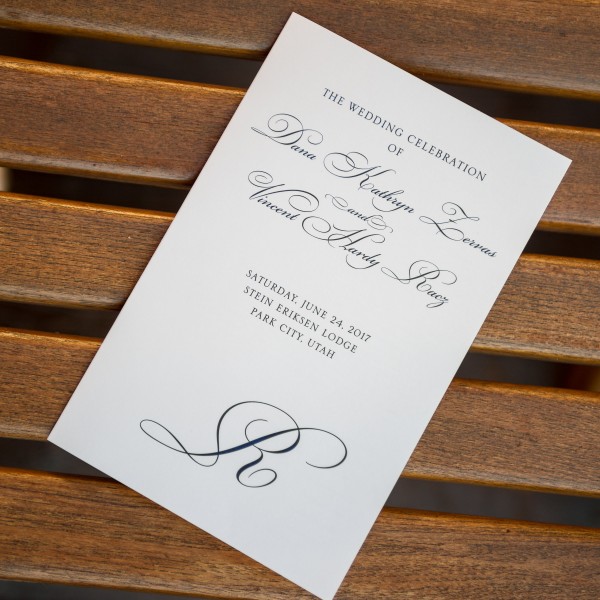 THE WEDDING CELEBRATION
OF
Dana Kathryn Zervas
and
Vincent Hardy Racz
SATURDAY, JUNE 24, 2017
STEIN ERIKSEN LODGE
PARK CITY, UTAH
R